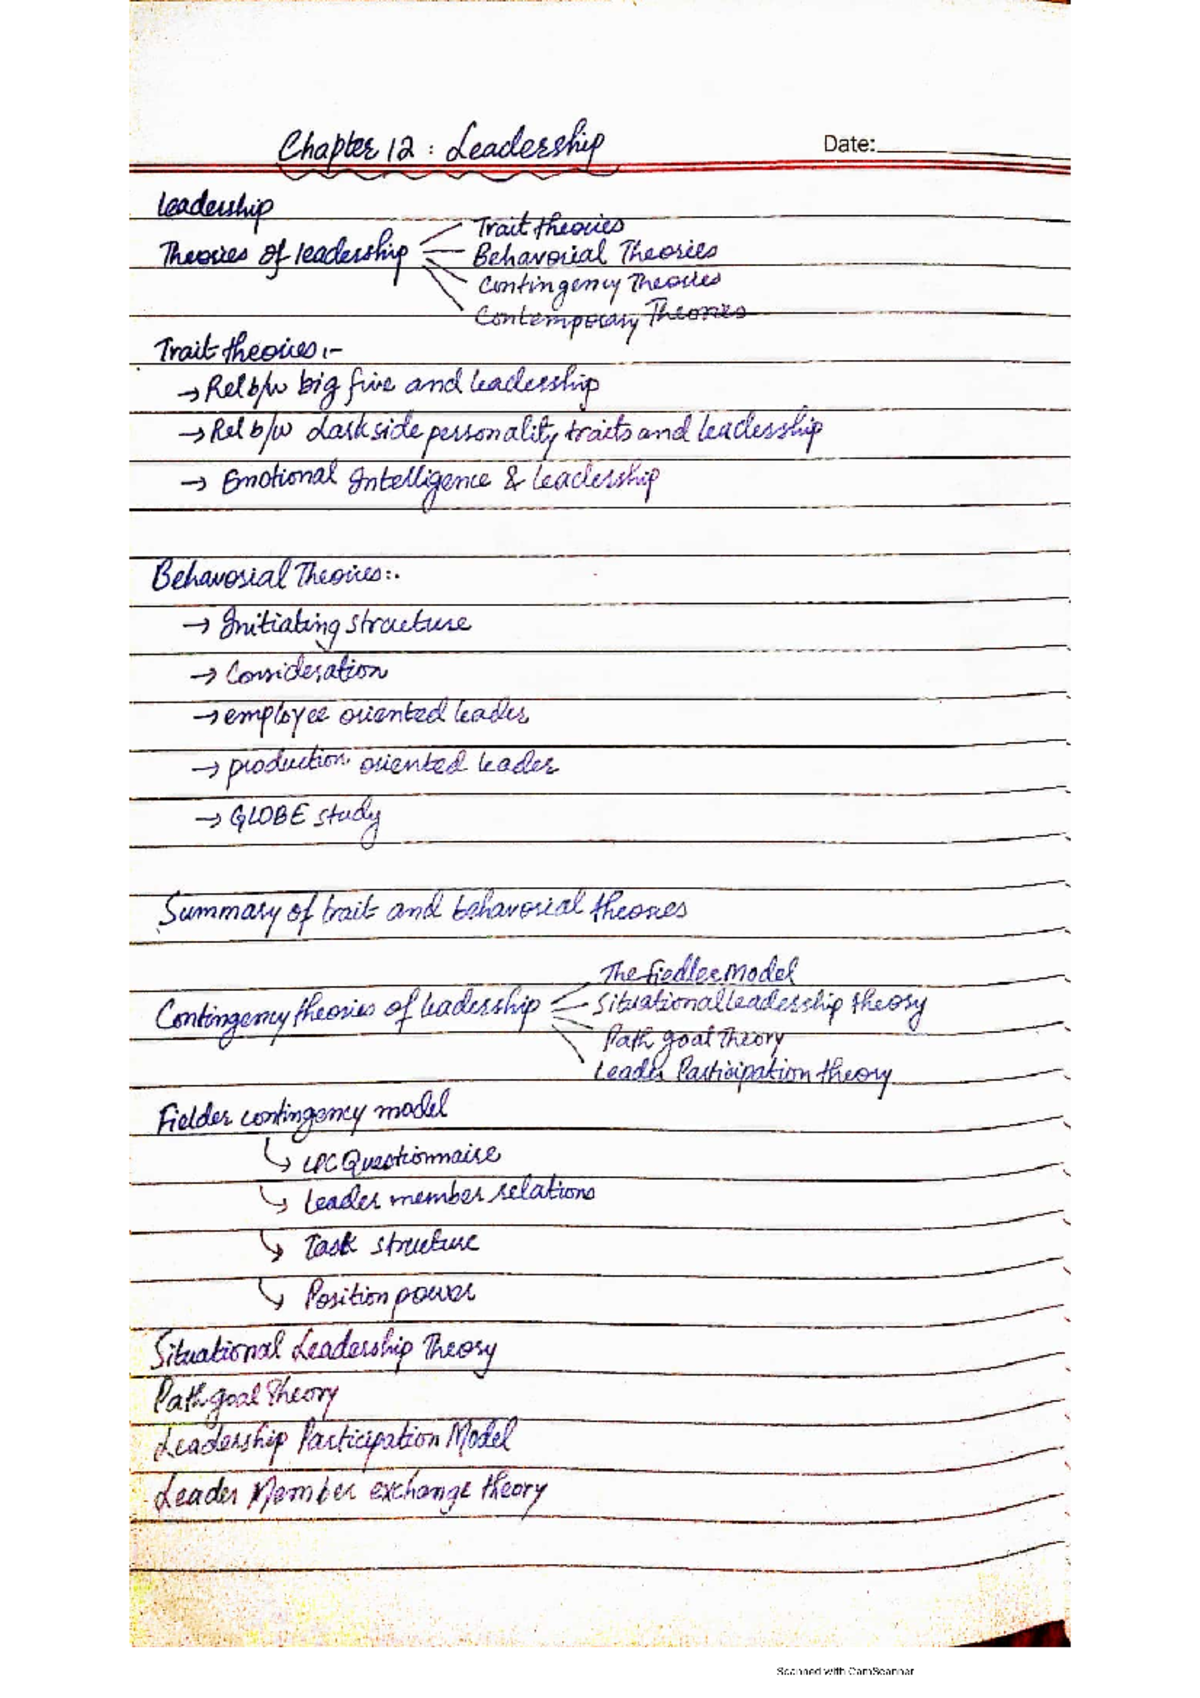 Chapter 12 : Leadership
Date:
Leadership
Theories of leadership
Trait theories
Behavorial Theories
Contingency Theories
Contemporary Theories
Trait theories :-
→ Rel b/w big five and leadership
→ Rel b/w dark side personality traits and leadership
→ Emotional Intelligence & leadership
Behavorial Theories:.
→ Initiating structure
→ Consideration
→ employee oriented leader
→ production oriented leader
→ GLOBE study
Summary of trait and behavorial theories
Contingency theories of leadership
The Fiedler Model
Situational leadership theory
Path goal Theory
Leader Participation theory
Fielder contingency model
↳ LPC Questionnaire
↳ Leader member relations
↳ Task structure
↳ Position power
Situational Leadership Theory
Path goal Theory
Leadership Participation Model
Leader Member exchange theory
Scanned with CamScanner